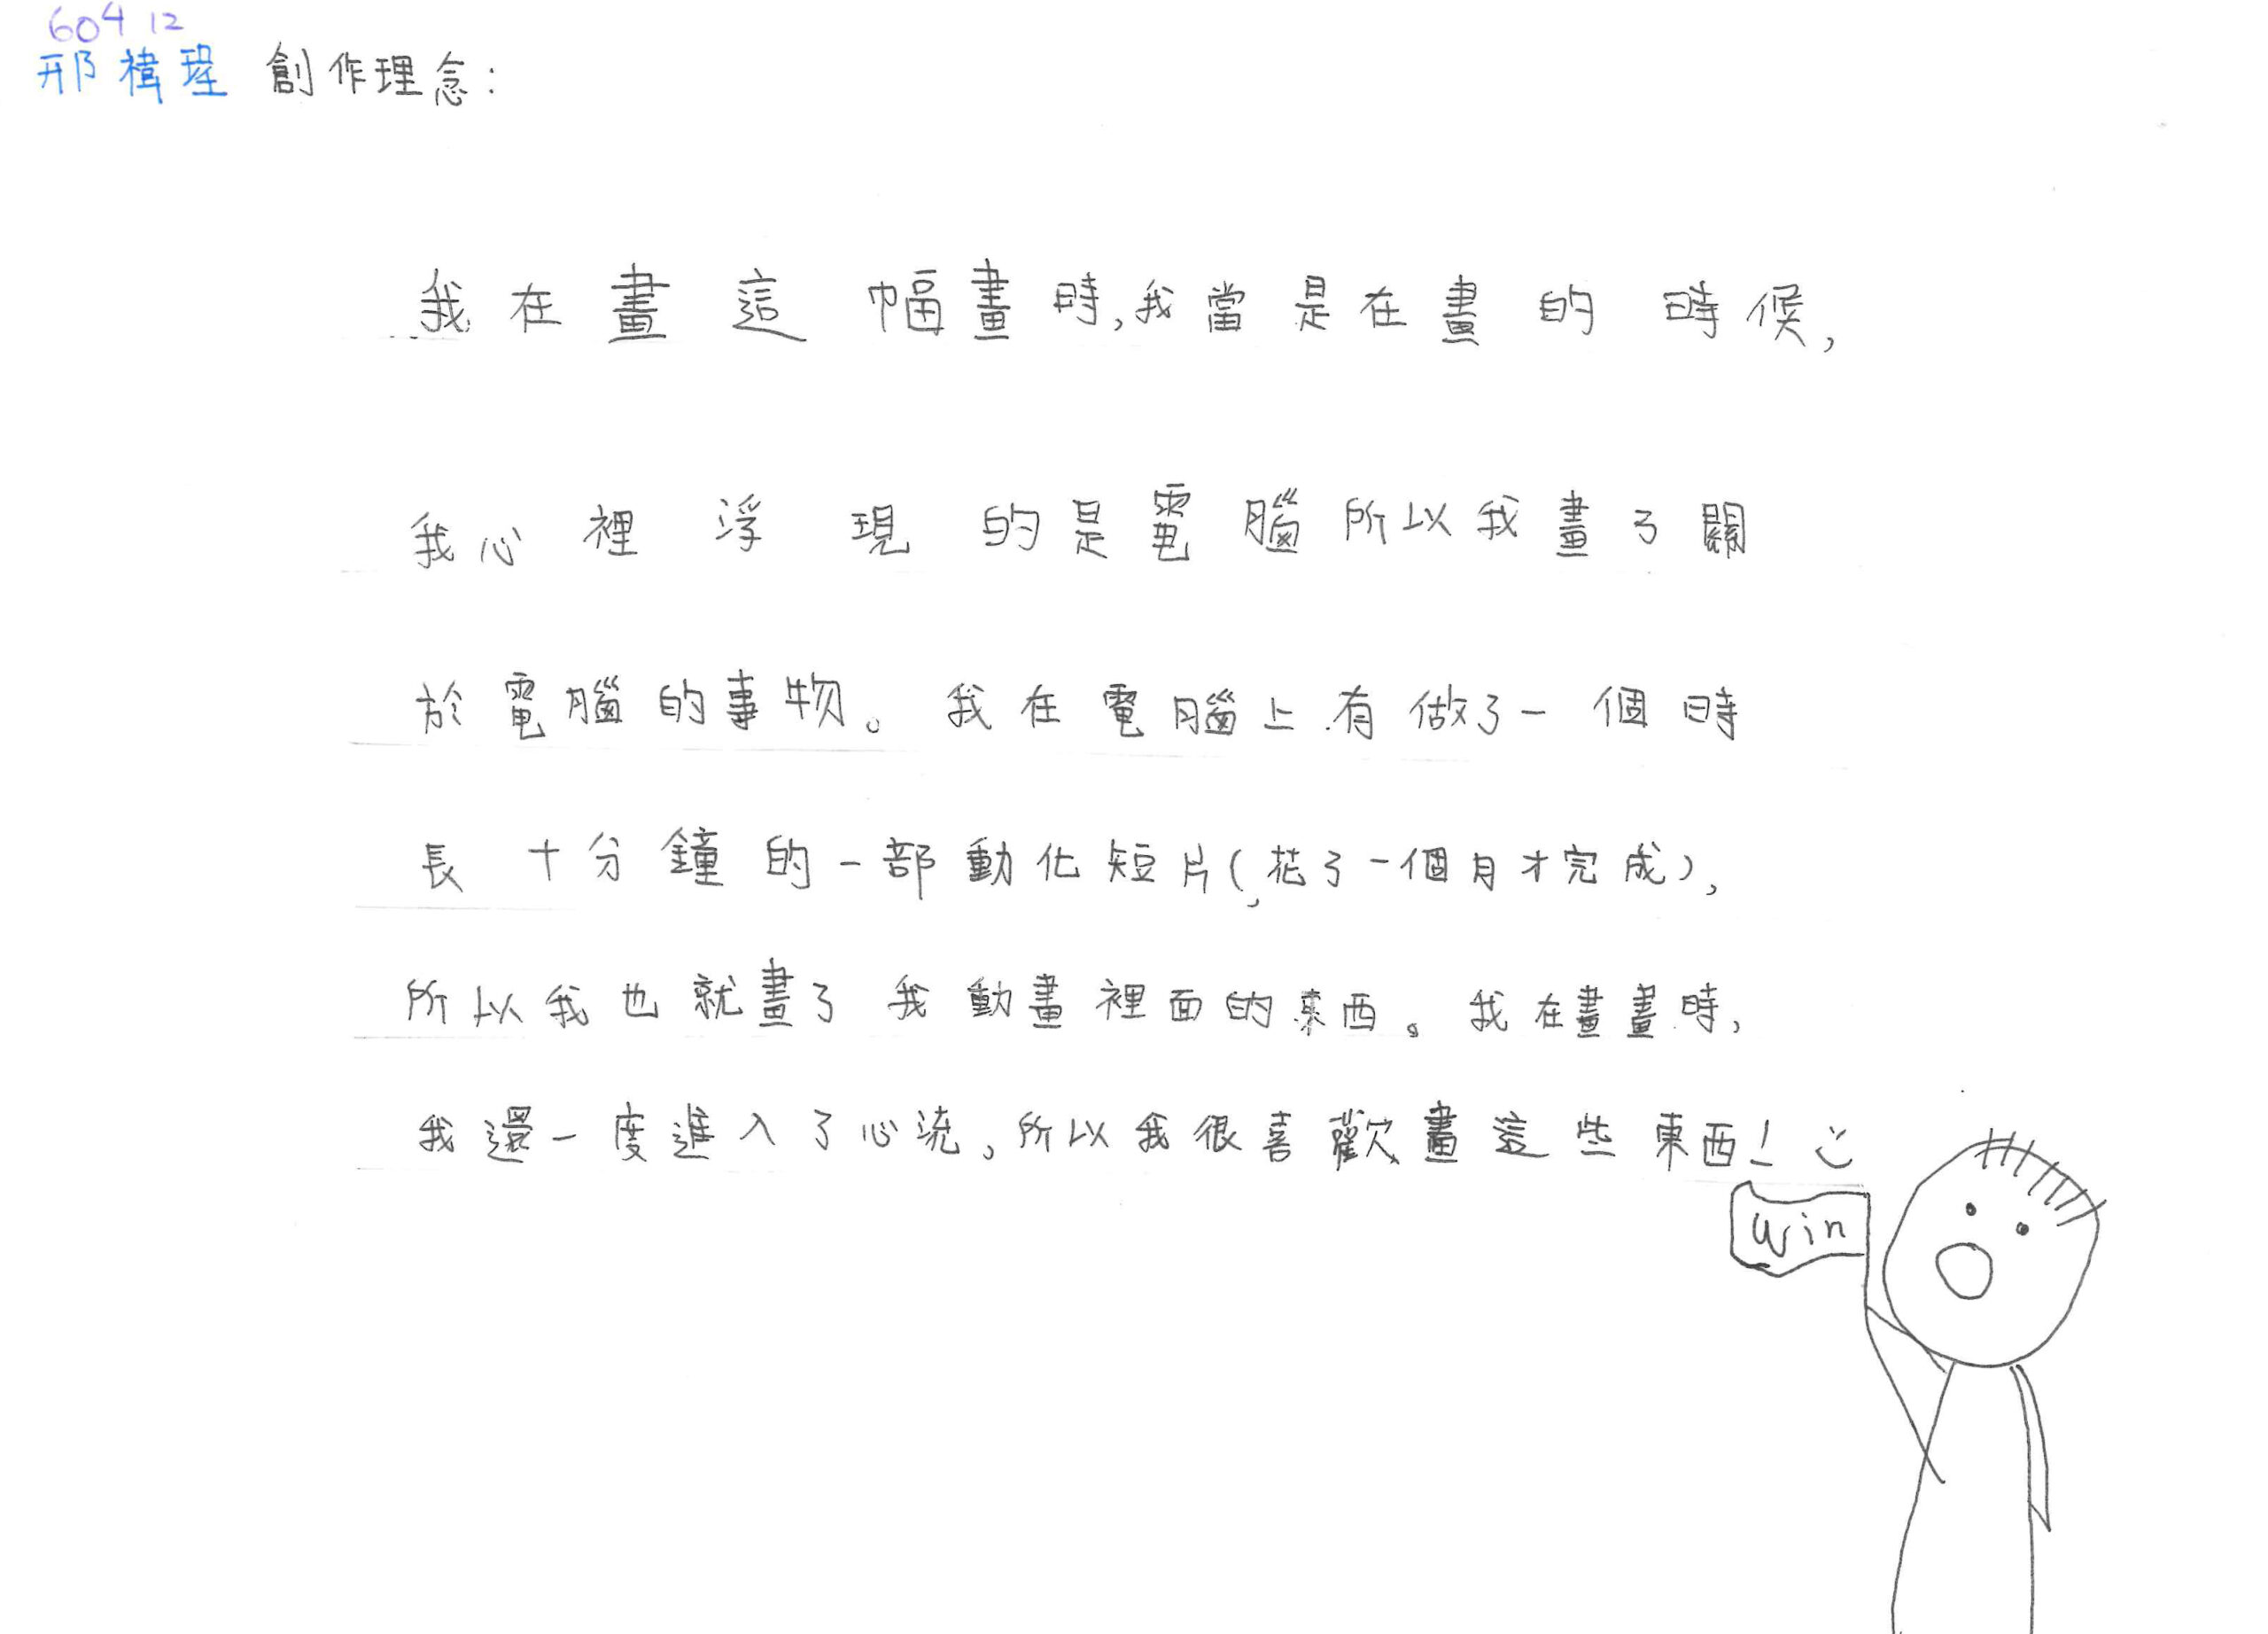 604 12
邢褘瑆 創作理念:
我在畫這幅畫時,我當是在畫的時候,
我心裡浮現的是電腦所以我畫了關
於電腦的事物。我在電腦上有做了一個時
長十分鐘的一部動化短片(花了一個月才完成),
所以我也就畫了我動畫裡面的東西。我在畫畫時,
我還一度進入了心流,所以我很喜歡畫這些東西!
Win